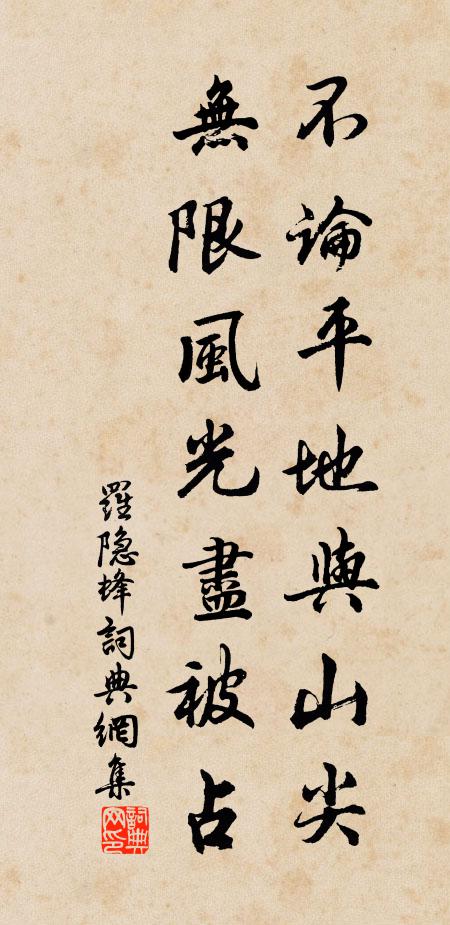 不論平地與山尖
無限風光盡被占
羅隐蜂詞典網集
詞典
网印